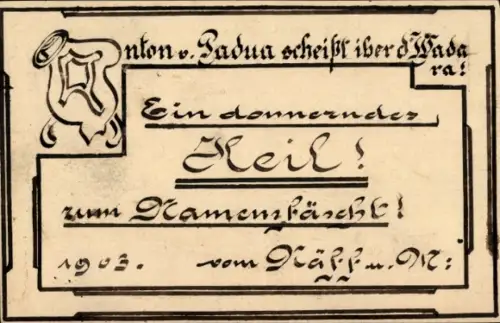 Anton v. Padua scheißt iber d'Wada
ra!
Ein donnerndes
Heil!
zum Namensfäscht!
1903. vom Näff u. M: